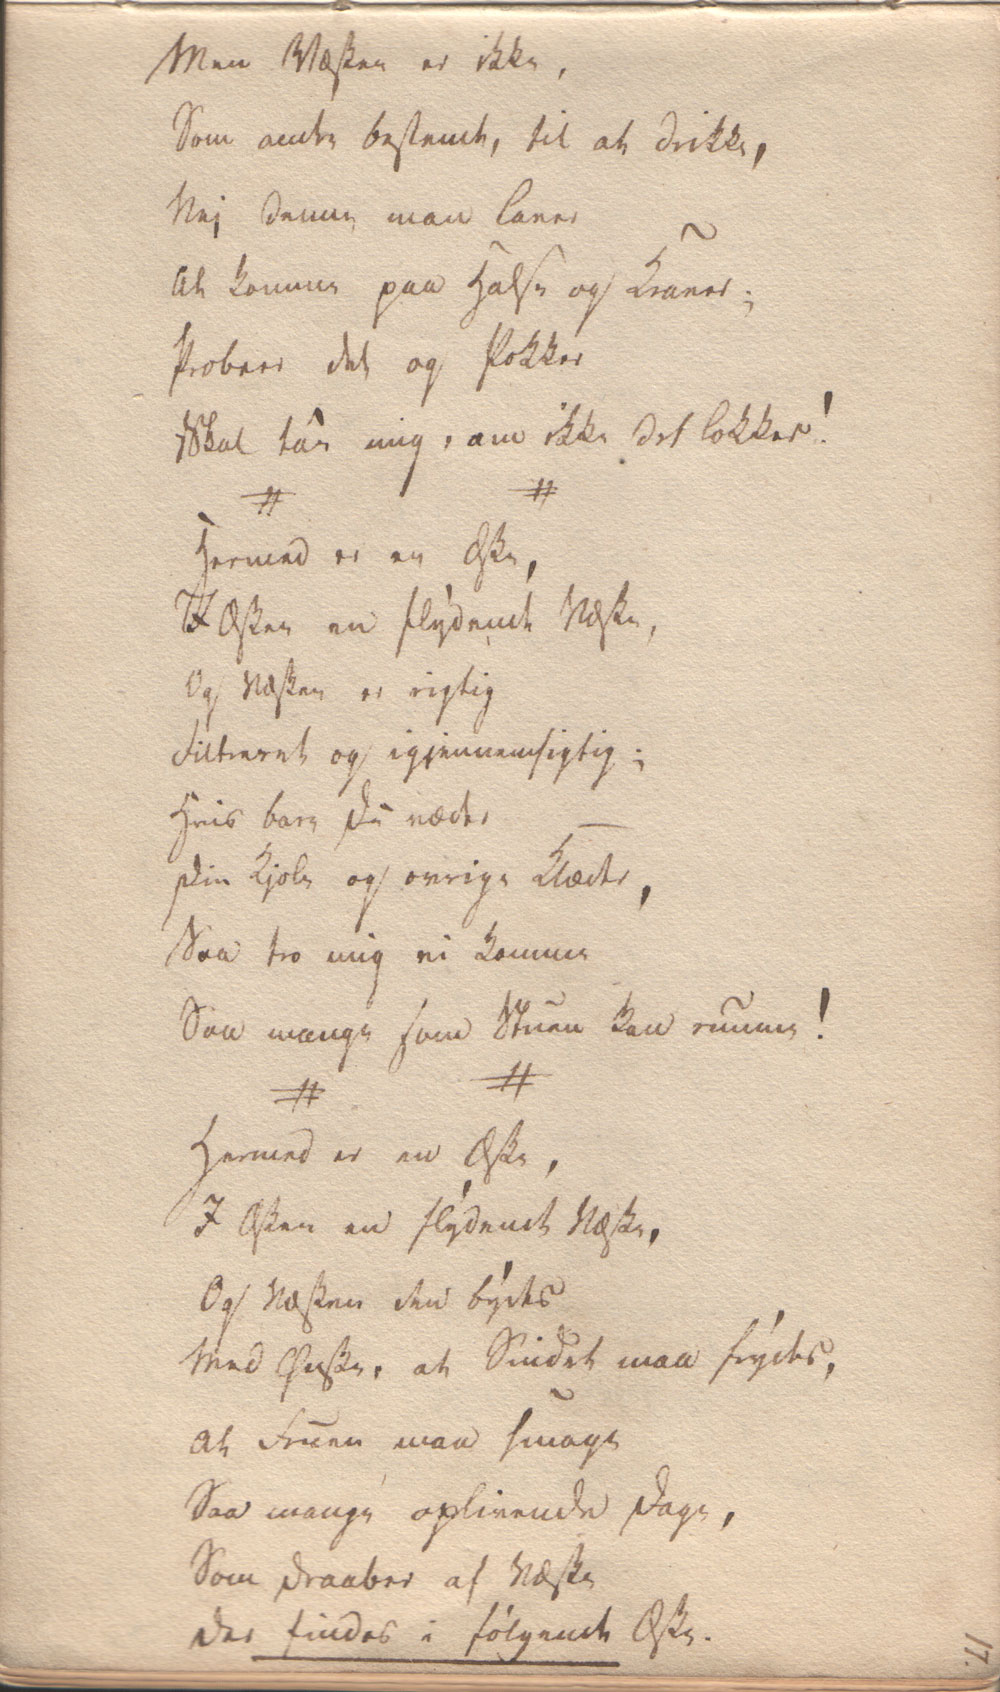 Men Væsken er ikke,
Som andre bestemt, til at drikke,
Nej denne man laner
At komme paa Halse og Kraner;
Probeer det og Pokker
Skal tâe mig, om ikke det lokker!
# #
Hermed er en Æske,
I Æsken en flÿdende Væske,
Og Væsken er rigtig
Filtreret og igjennemsigtig;
Hvis bare Du væder
Din Kjole og øvrige Klæder,
Saa tro mig ei komme
Saa mange som Stuen kan rumme!
# #
Hermed er en Æske,
I Æsken en flÿdende Væske,
Og Væsken den bÿdes
Med Ønske, at Sindet maa frÿdes,
At Fruen maa smage
Saa mange oplivende Dage,
Som Draaber af Væske
Der findes i følgende Æske.
17.